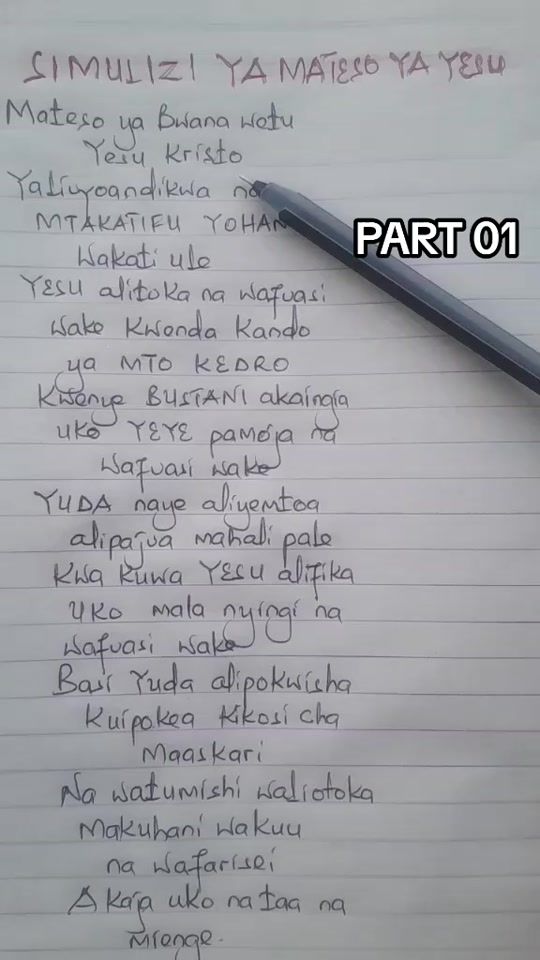 SIMULIZI YA MATESO YA YESU
Mateso ya Bwana wetu
Yesu Kristo
Yaliyoandikwa na
MTAKATIFU YOHAN
PART 01
Wakati ule
YESU alitoka na wafuasi
wake Kwenda Kando
ya MTO KEDRO
Kwenye BUSTANI akaingia
uko YEYE pamoja na
wafuasi wake
YUDA naye aliyemtoa
alipajua mahali pale
Kwa kuwa YESU alifika
UKO mala nyingi na
wafuasi wake
Basi Yuda alipokwisha
Kuipokea Kikosi cha
Maaskari
Na watumishi waliotoka
Makuhani wakuu
na wafarisei
A kaja uko na taa na
mienge.